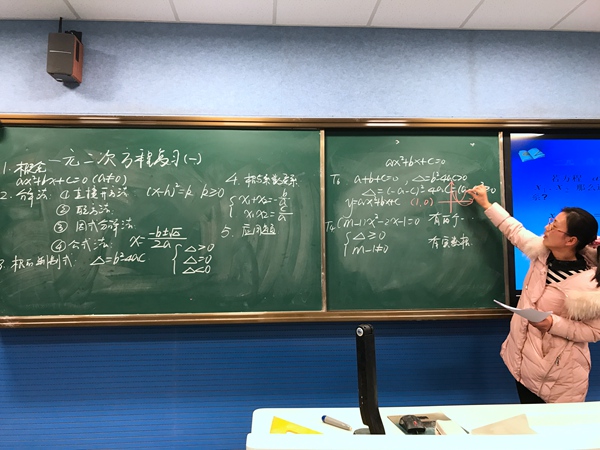 一元二次方程复习(一)
1. 概念
ax²+bx+c=0 (a≠0)
2. 解法: ① 直接开方法 (x-h)²=k k≥0
② 配方法
③ 因式分解法
④ 公式法: x=
-b±√Δ
2a
3. 根的判别式: Δ=b²-4ac
{Δ>0
Δ=0
Δ<0
4. 根与系数关系
{x₁+x₂=-b/a
x₁x₂=c/a
5. 应用题
ax²+bx+c=0
a+b+c=0 Δ=b²-4ac≥0
Δ=(-a-c)²-4ac
y=ax²+bx+c (1,0)
(m-1)x²-2x-1=0
{Δ≥0
m-1≠0
有实数根